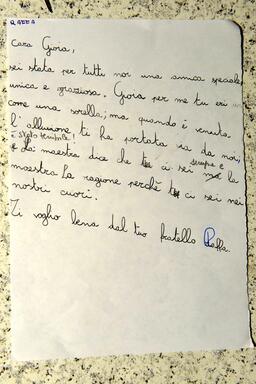 RAFFA
Cara Gioia,
sei stata per tutti noi una amica speciale
unica e graziosa. Gioia per me tu eri
come una sorella; ma quando è venuta
l'alluvione, ti ha portata via da noi,
è stato terribile!
e La maestra dice che ci sei sempre e la
maestra ha ragione perché ci sei nei
nostri cuori.
Ti voglio bene dal tuo fratello Raffa.